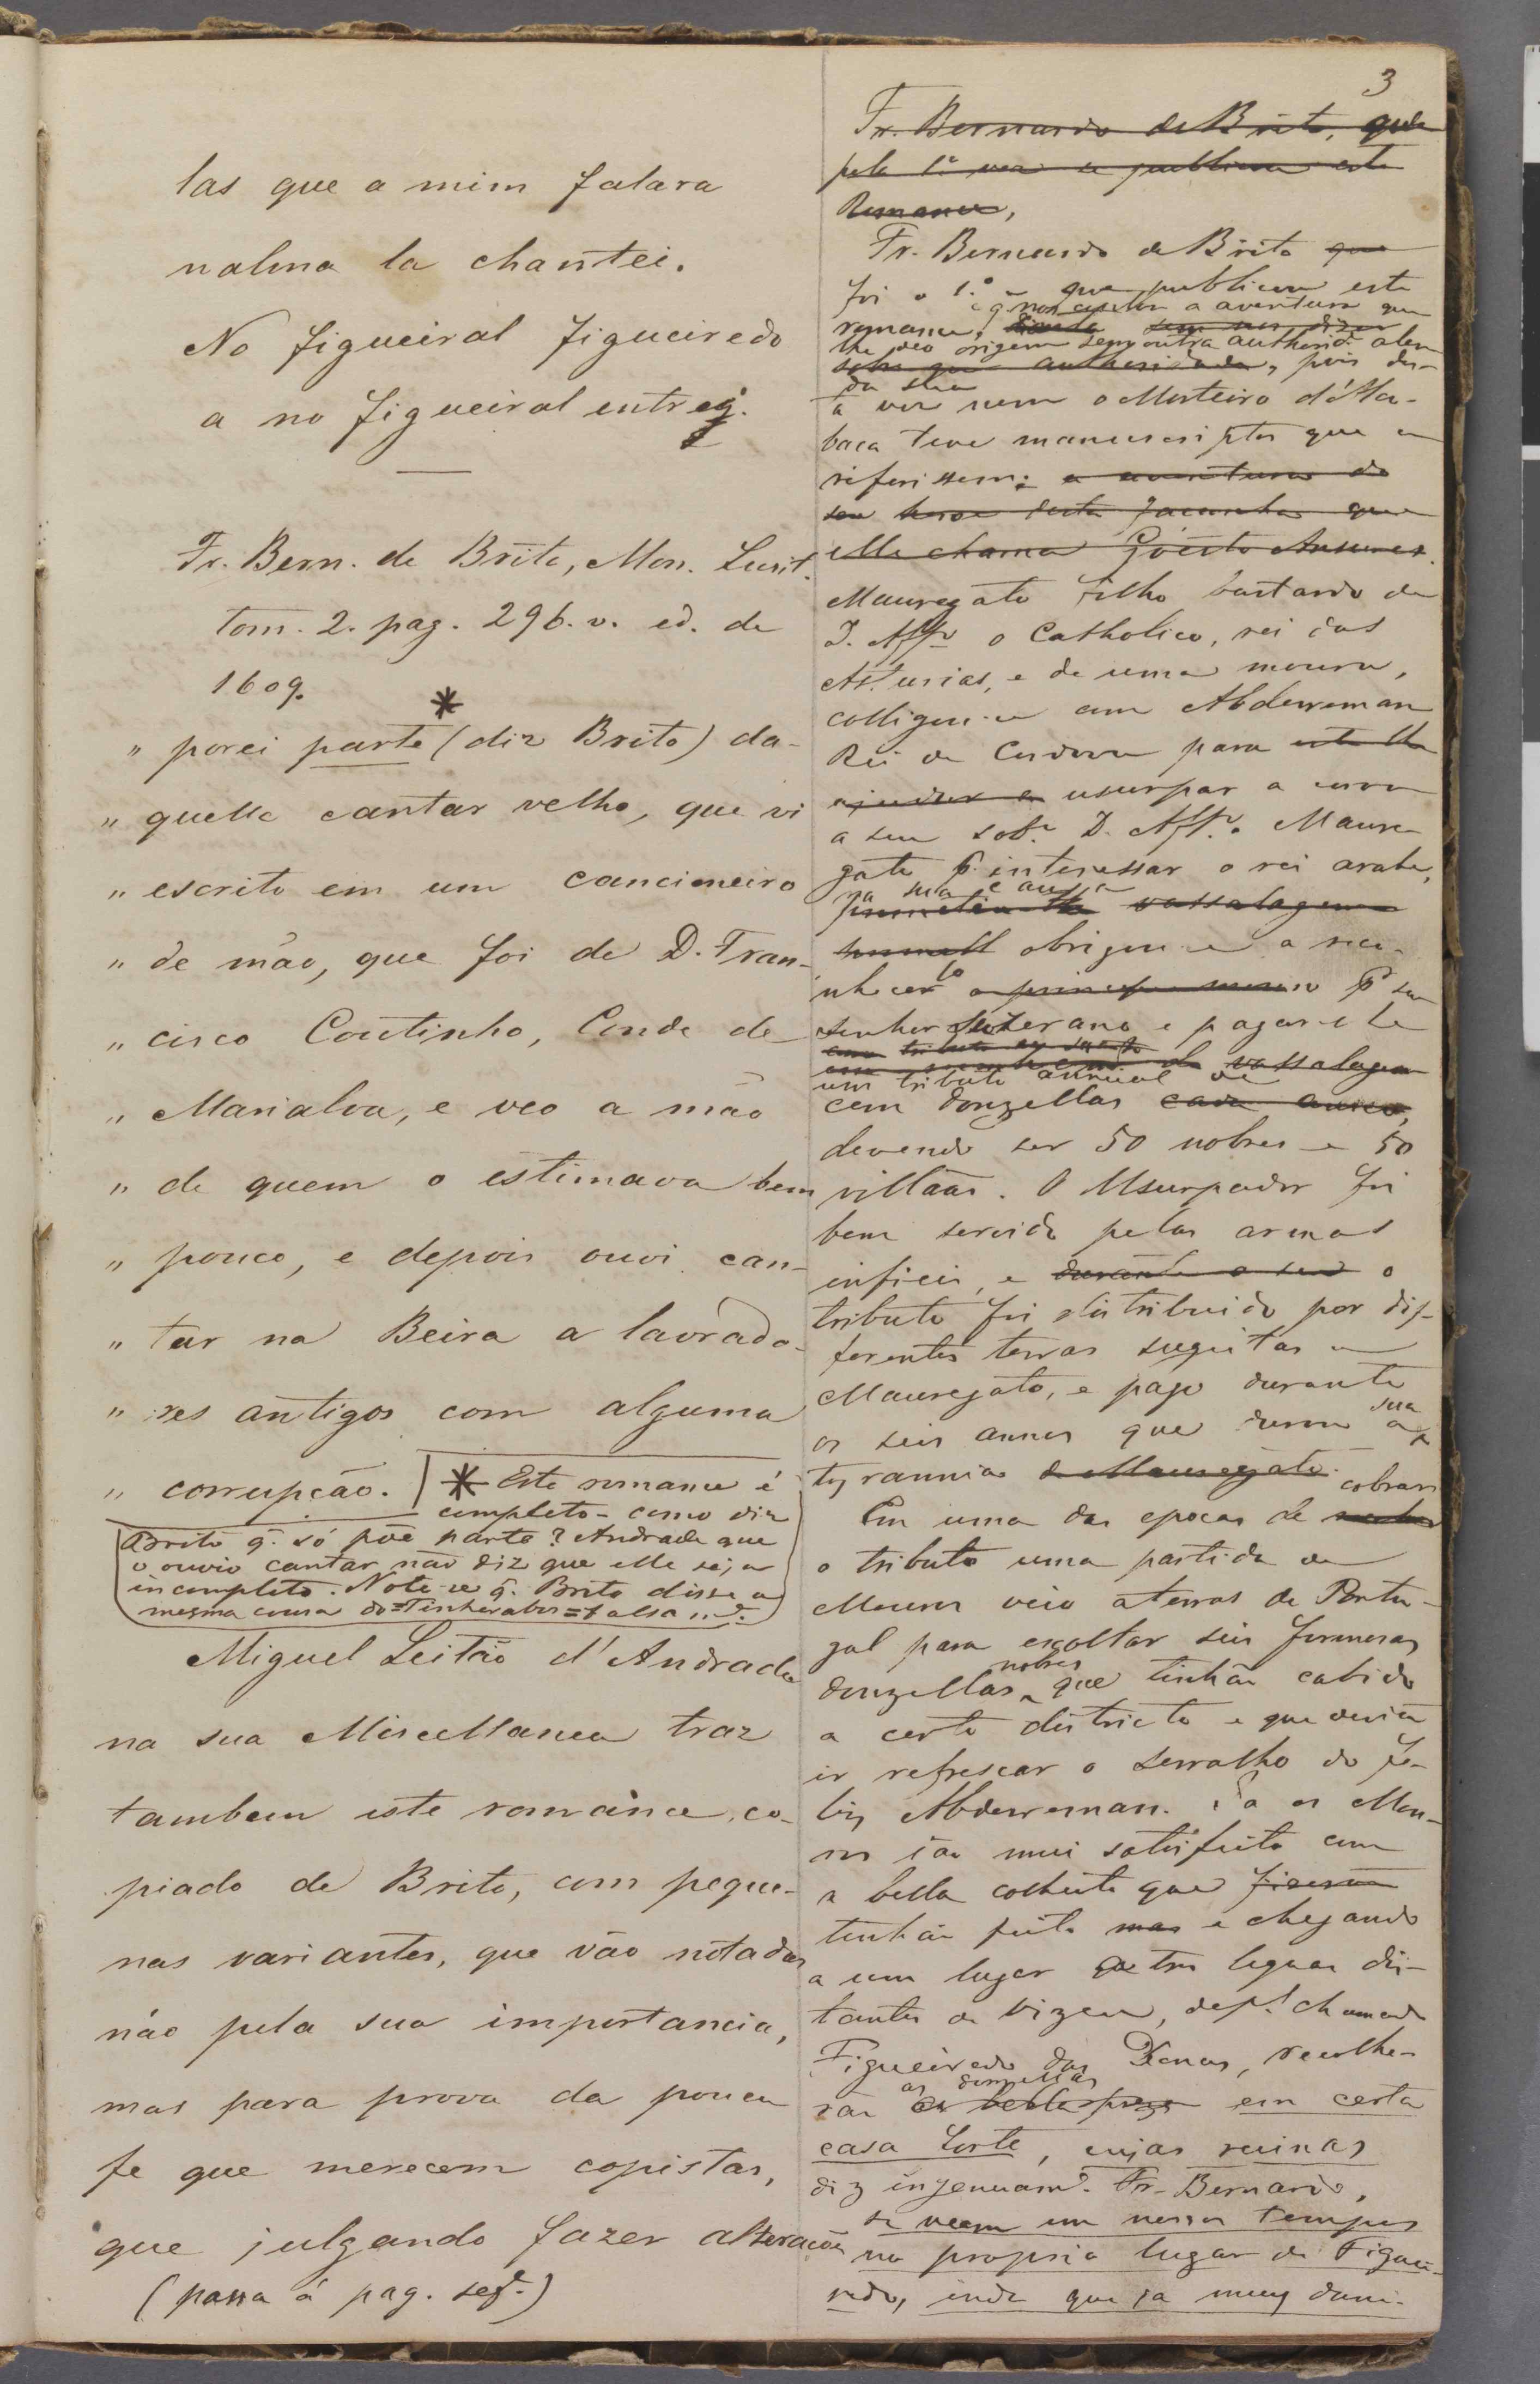 3
las que a mim falara
nalma la chantei.
No figueiral figueiredo
a no figueiral entrey.
Fr. Bern. de Brito, Mon. Lusit.
tom. 2. pag. 296. v. ed. de
1609.
" porei parte * (diz Brito) da-
" quelle cantar velho, que vi
" escrito em um cancioneiro
" de mão, que foi de D. Fran-
" cisco Coutinho, Conde de
" Marialva, e veo a mão
" de quem o estimava bem
" pouco, e depois ouvi can-
" tar na Beira a lavrado-
" res antigos com alguma
" corrupção.
* Este romance é
completo - como diz
Brito q. só põe parte? Andrade que
o ouvio cantar não diz que elle seja
incompleto. Note-se q. Brito disse a
mesma cousa do = Tinherabos =
Miguel Leitão d'Andrade
na sua Miscellanea traz
tambem este romance, co-
piado de Brito, com peque-
nas variantes, que vão notadas
não pela sua importancia,
mas para prova da pouca
fe que merecem copistas,
que julgando fazer alterações
(passa á pag. segte.)
Fr. Bernardo de Brito, que
pela 1.ª vez se publicou este
Romance,
Fr. Bernardo de Brito que
foi o 1.º que publicou este
e q nos contou a aventura que
romance, sem nos dizer
lhe deo origem sem outra authorid.e alem
sobre que authoridade, pois des-
da sua
ta vez nem o Mosteiro d'Alco-
baca teve manuscriptos que a
referissem; a aventura do
seu heroe desta facanha que
elle chama Goesto Ansures.
Mauregato filho bastardo de
D. Affo o Catholico, rei das
Asturias, e de uma moura,
colligou-se com Abderreman
Rei de Cordova para este lhe
ajudar a usurpar a coroa
a seu sob.o D. Aff.o. Maure-
gato p. interessar o rei arabe,
na sua causa
prometeu-lhe vassalagem
obrigou-se a reco-
nhecelo o principe mouro p.r seu
senhor suzerano e pagar-lhe
vassalagem
um tributo annual de
cem donzellas cada anno,
devendo ser 50 nobres e 50
villãas. O Usurpador foi
bem servido pelas armas
infieis, e durante o seu o
tributo foi distribuido por dif-
ferentes terras sugeitas a
Mauregato, e pago durante
os seis annos que durou a sua
tyrannia de Mauregato.
Em uma das epocas de cobrar
o tributo uma partida de
Mouros veio a terras de Portu-
gal para escoltar seis formosas
donzellas nobres que tinhão cabido
a certo districto e que devião
ir refrescar o serralho do fe-
liz Abderreman. Ja os Mou-
ros ião mui satisfeitos com
a bella colheita que fizerão
tinhão feito mas e chegando
a um lugar de tres legoas dis-
tantes de Vizeu, dep.s chamado
Figueiredo das Donas, recolhe-
rão as donzellas em certa
casa forte, cujas ruinas
diz ingenuam.e Fr. Bernardo,
se veem em nossos tempos
no proprio lugar de Figuei-
redo, inda que ja muy dani-